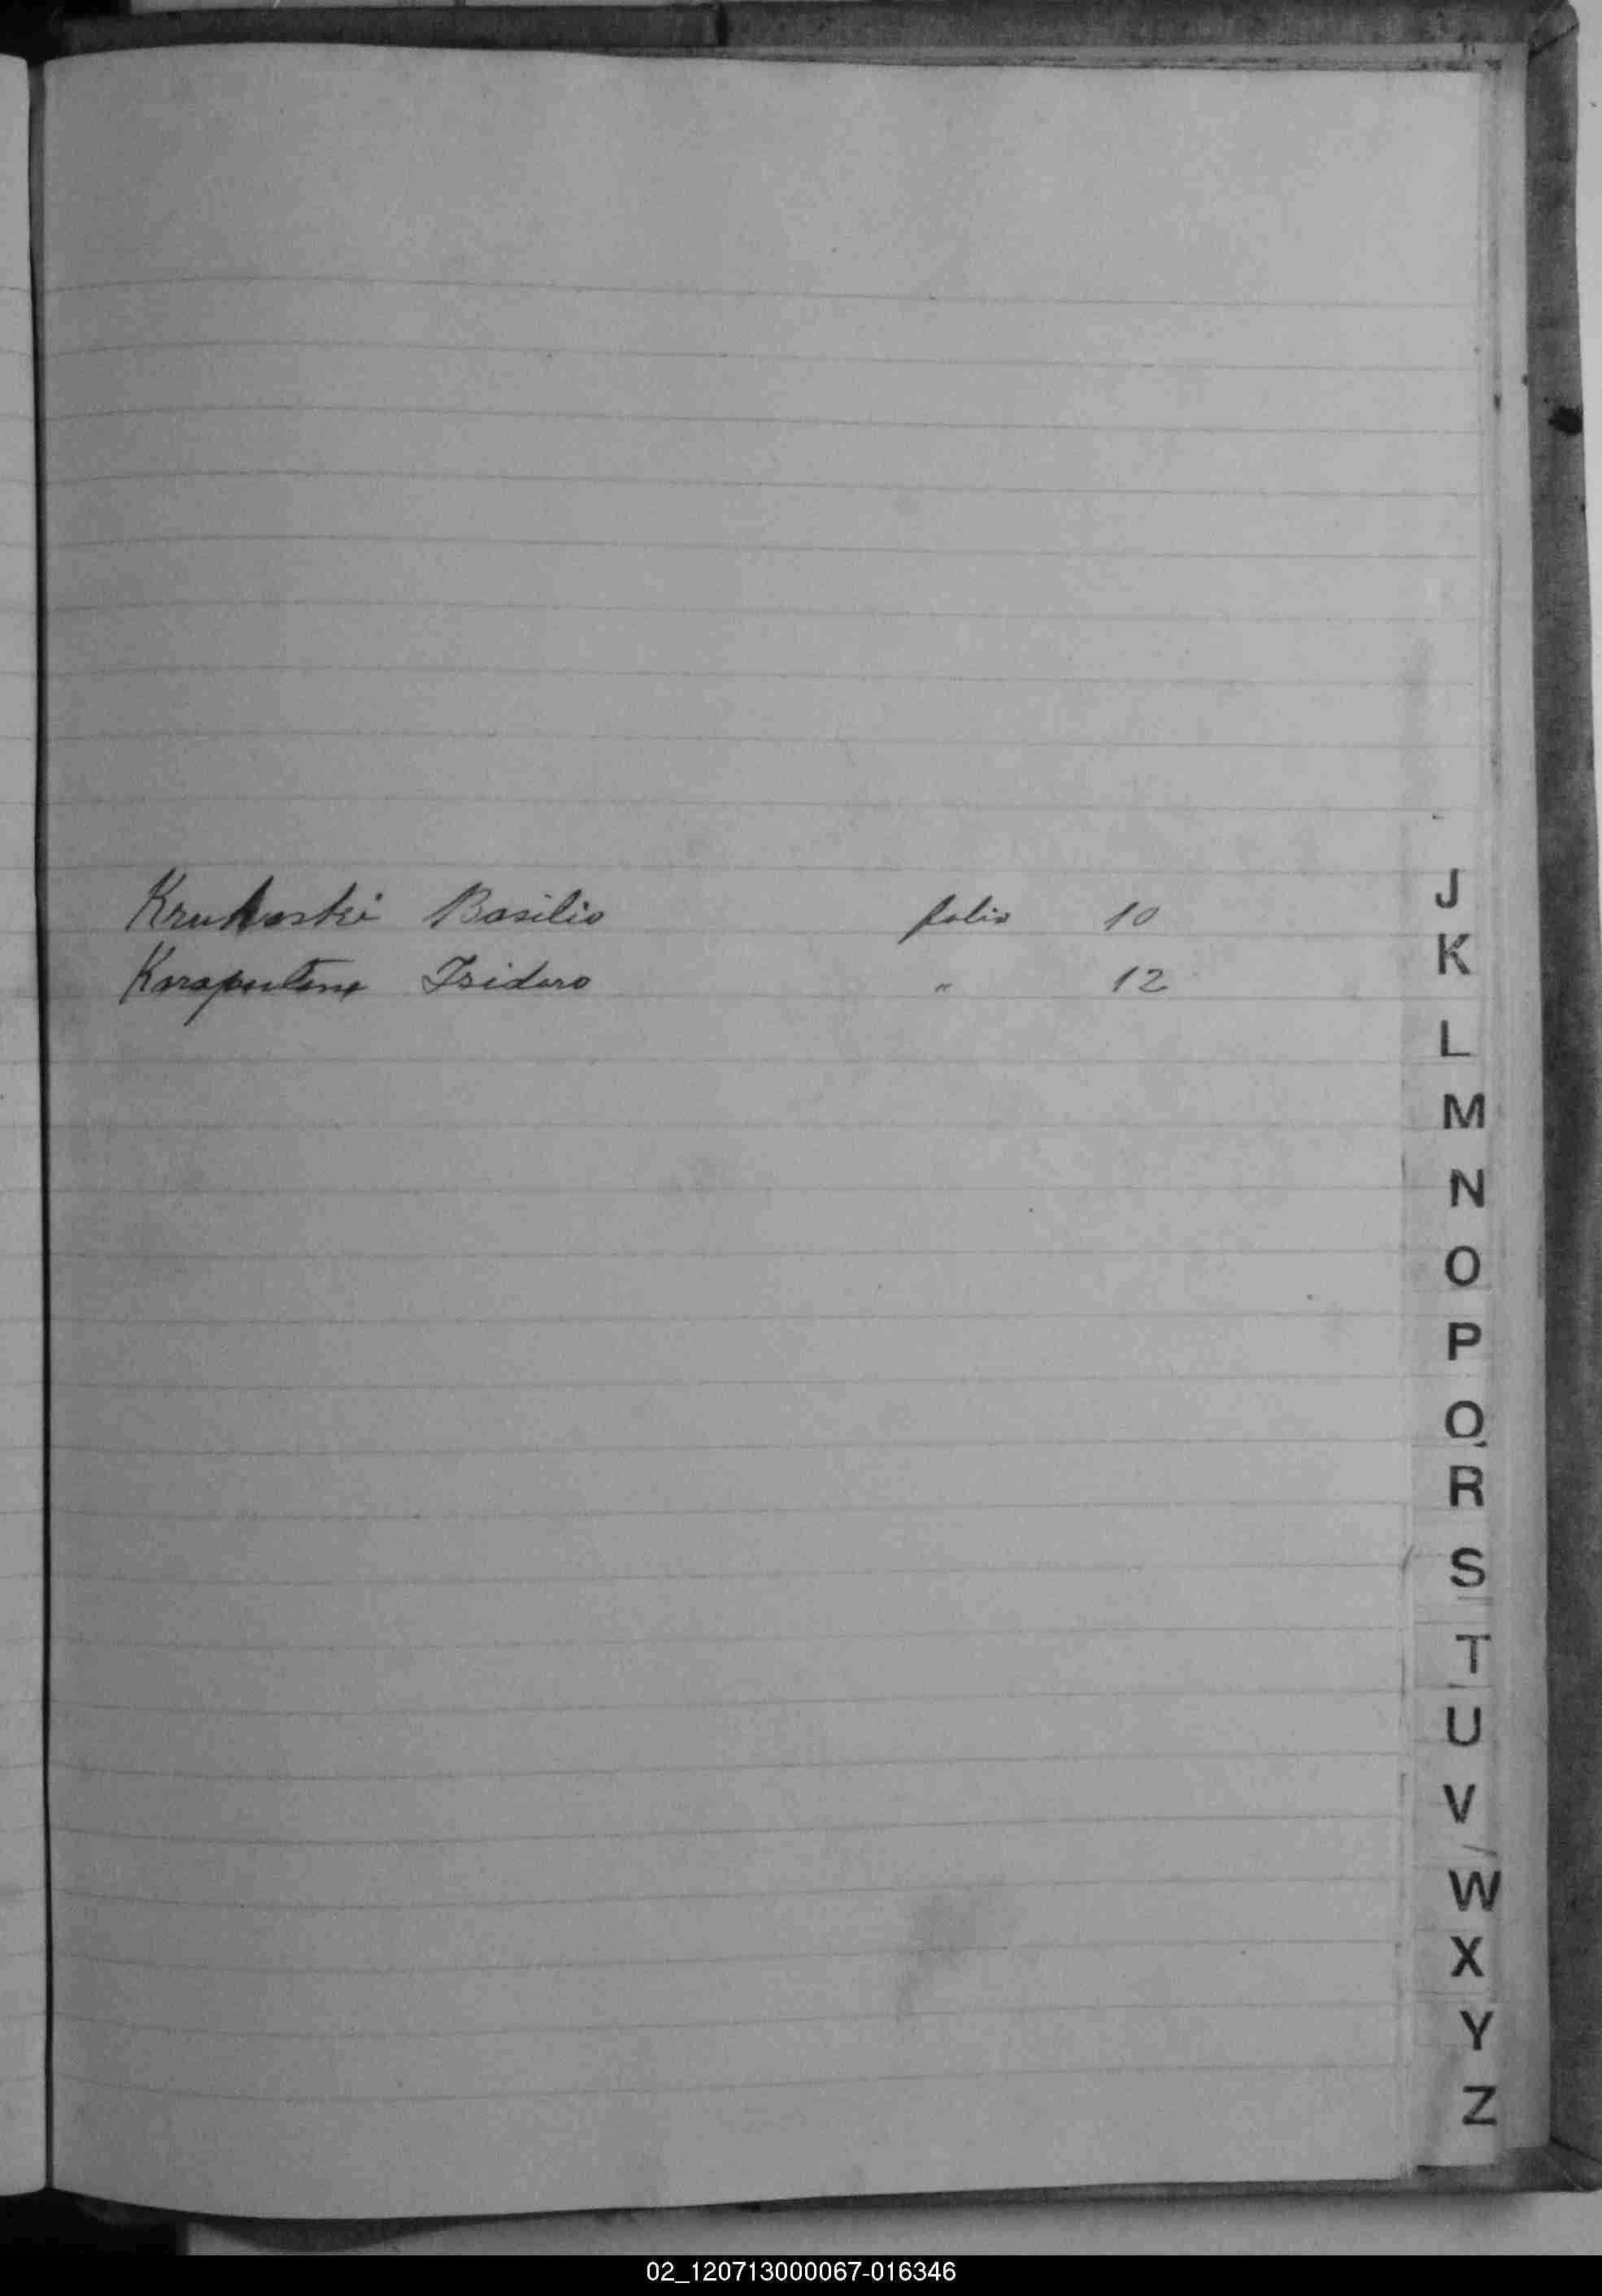 Kruhoski Basilio folio 10
Isidoro " 12
J
K
L
M
N
O
P
Q
R
S
T
U
V
W
X
Y
Z
02_120713000067-016346